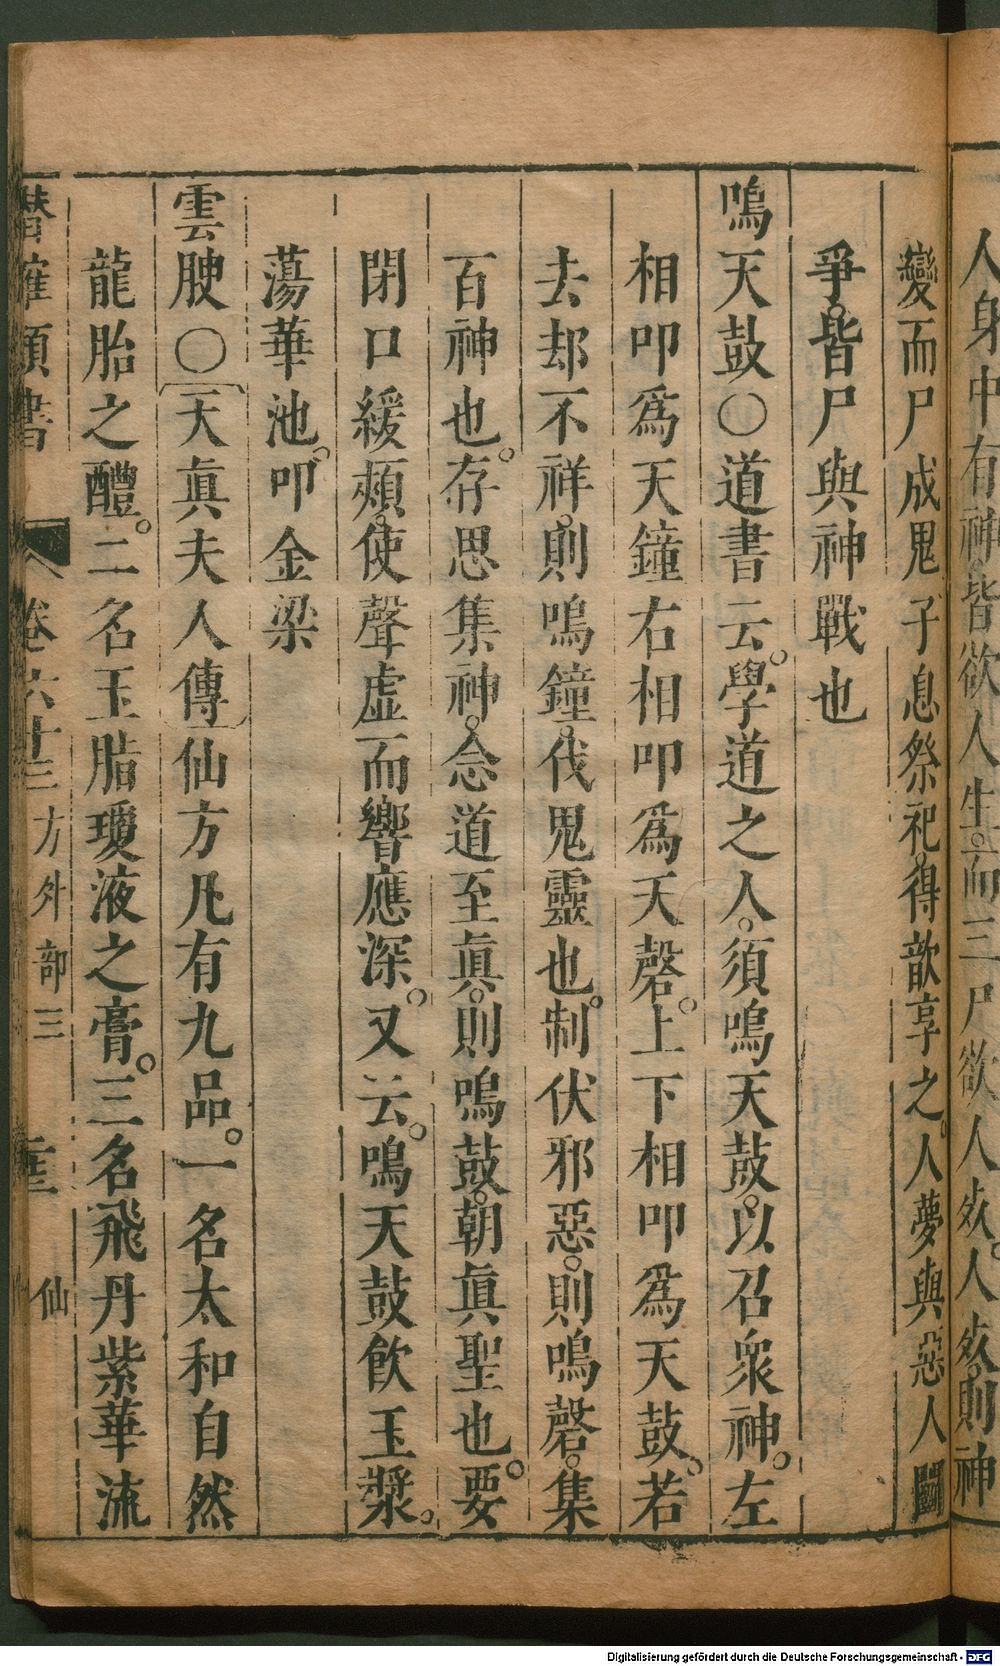 人身中有神。皆欲人生。而三尸欲人死。人死。則神
變而尸成鬼。子息祭祀。得歆享之。人夢與惡人鬭
爭。皆尸與神戰也
鳴天鼓〇道書云。學道之人。須鳴天鼓。以召衆神。左
相叩爲天鐘右相叩爲天磬。上下相叩爲天鼓。若
去却不祥。則鳴鐘。伐鬼靈也。制伏邪惡。則鳴磬。集
百神也。存思集神。念道至眞。則鳴鼓。朝眞聖也。要
閉口緩頰。使聲虛而響應深。又云。鳴天鼓飲玉漿。
蕩華池。叩金梁
雲腴〇天眞夫人傳仙方凡有九品。一名太和自然
龍胎之醴。二名玉脂瓊液之膏。三名飛丹紫華流
潛確類書 卷六十三方外部三 仙
Digitalisierung gefördert durch die Deutsche Forschungsgemeinschaft - DFG